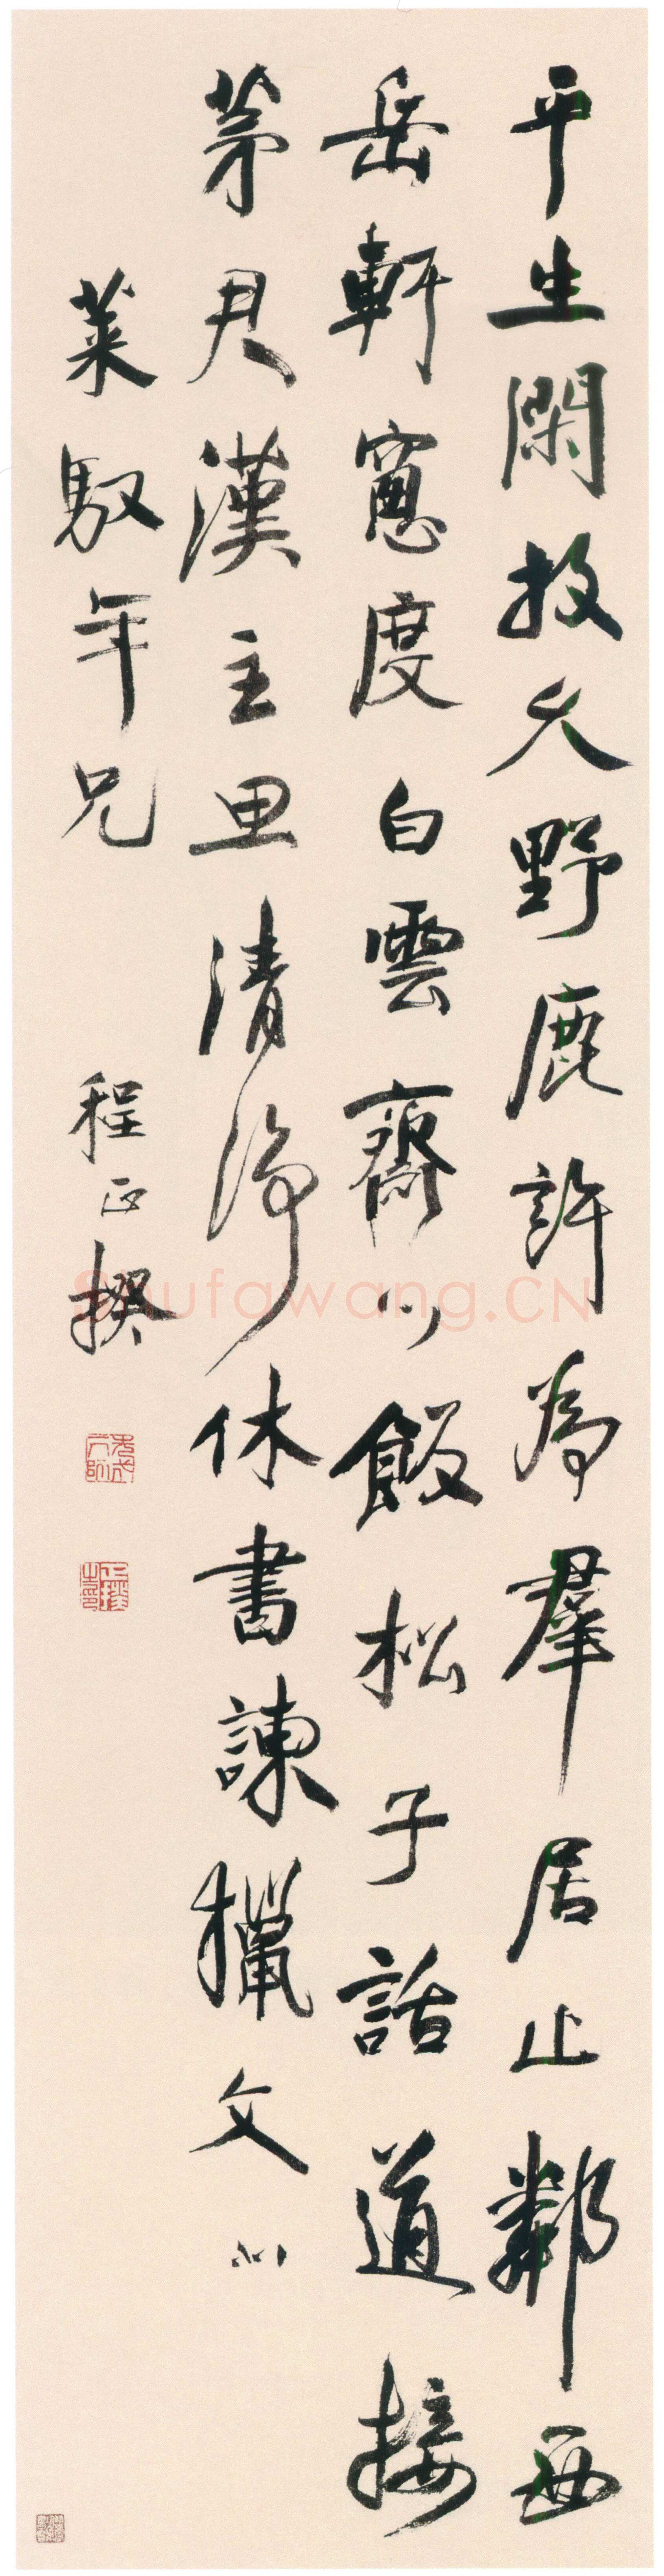 平生閑放久野鹿許為羣居止鄰西
岳軒窓度白雲齋心飯松子話道接
茅君漢主思清淨休書諫獵文
萊馭年兄 程正揆
Shufawang.CN